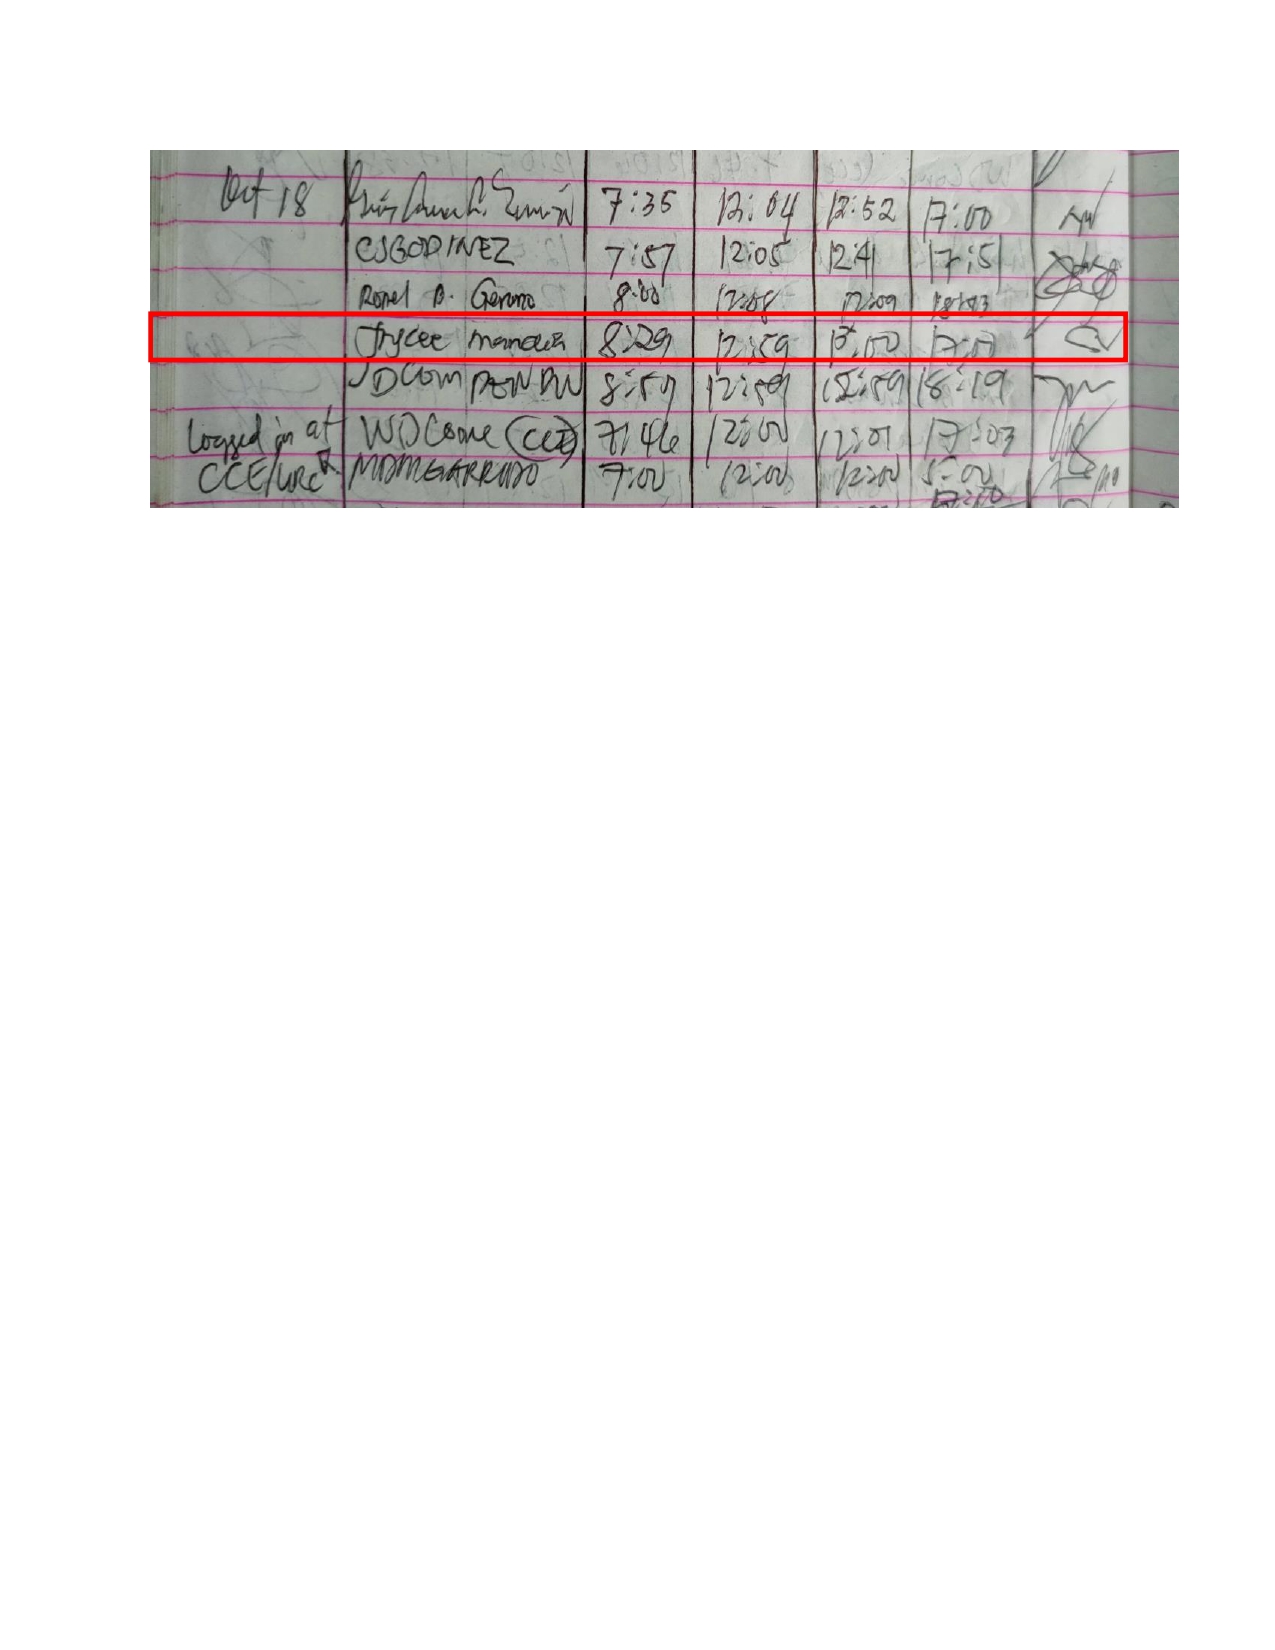 Oct 18 7:35 12:04 12:52 17:00
CSGODINEZ 7:57 12:05 12:41 17:51
Ronel B. Geromo 8:00 12:08 12:09
Jrycee 8:29 12:59 13:00
JDCom 8:59 12:59 12:59 18:19
Logged in at WDCosme (CCE) 7:46 12:00 12:01 17:03
CCE/URC MDMGARRIDO 7:00 12:00 12:00 5:00
17:00